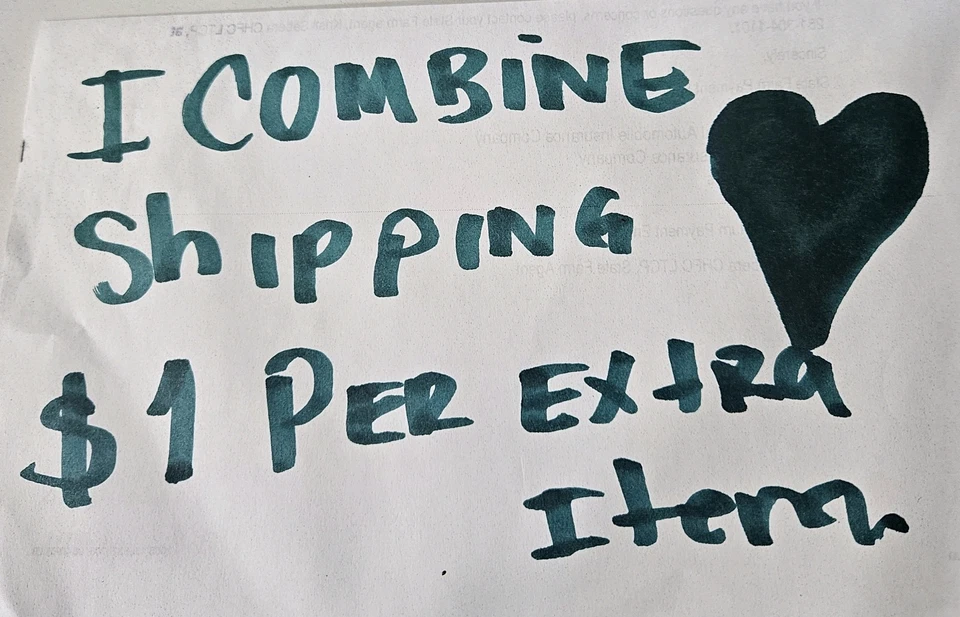 I COMBiNE
ShIPPING
$1 PER EXtRa
Item